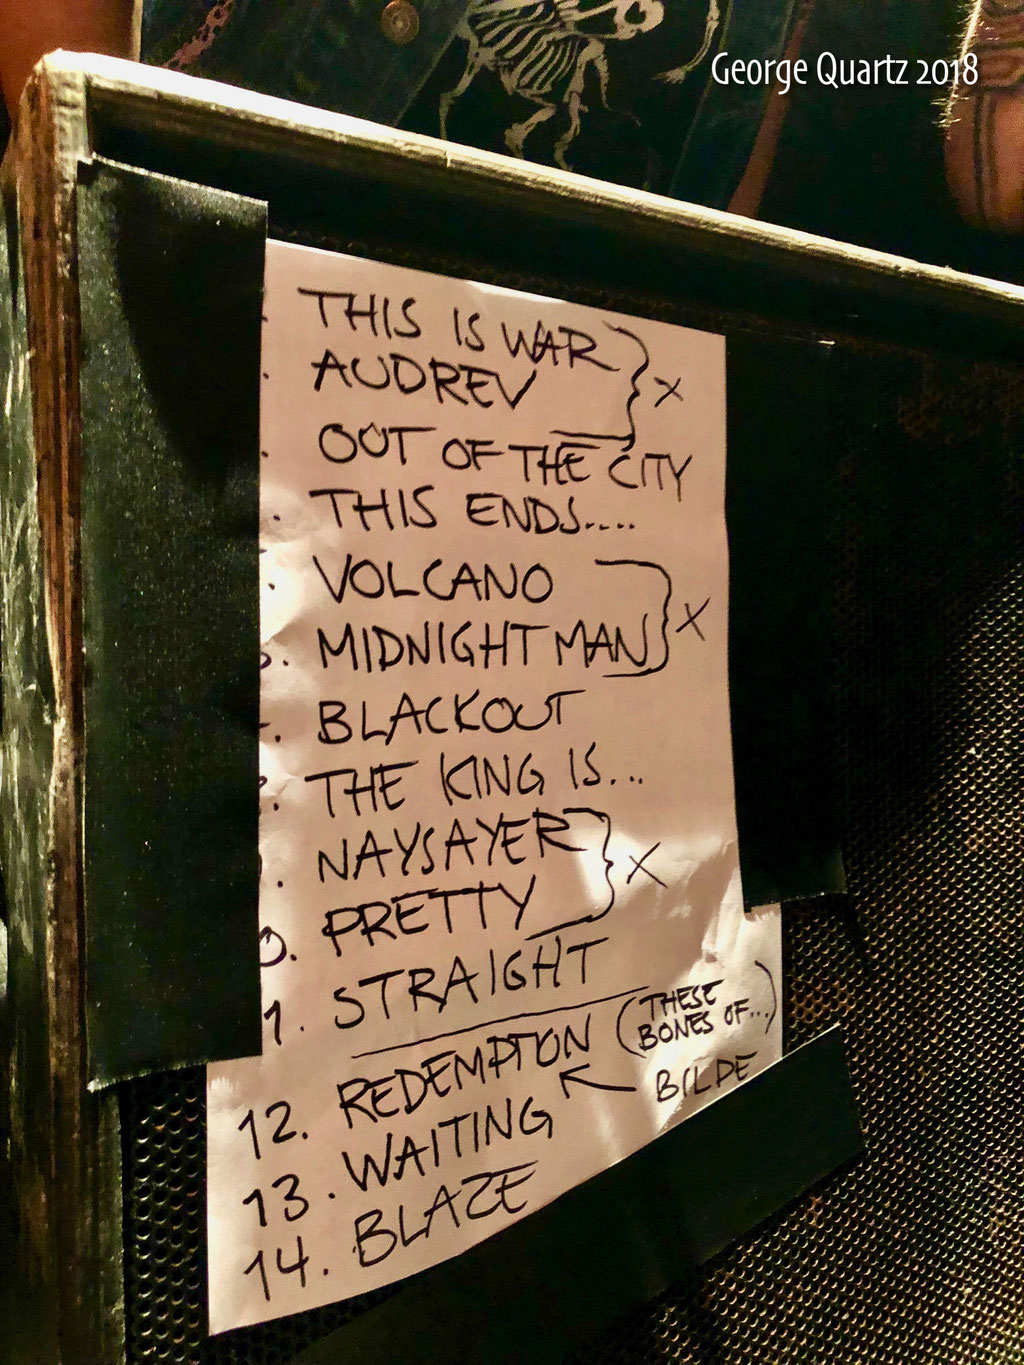 George Quartz 2018
THIS IS WAR
AUDREV
OUT OF THE CITY
THIS ENDS....
VOLCANO
MIDNIGHT MAN
BLACKOUT
THE KING IS...
NAYSAYER
PRETTY
STRAIGHT
X
X
X
12. REDEMPTION (THESE BONES OF...)
13. WAITING
BILDE
14. BLAZE